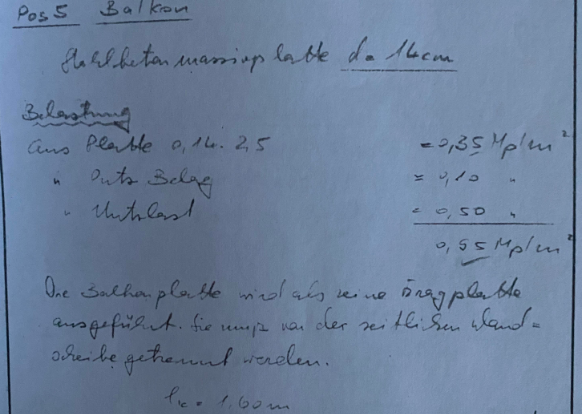 Pos 5 Balkon
Stahlbetonmassivplatte d = 14cm
Belastung
aus Platte 0,14 · 2,5 = 0,35 Mp/m²
" Putz Belag = 0,10 "
" Nutzlast = 0,50 "
0,95 Mp/m²
Die Balkonplatte wird als reine Kragplatte
ausgeführt. Sie muß von der seitlichen Wand=
scheibe getrennt werden.
lk = 1,60m